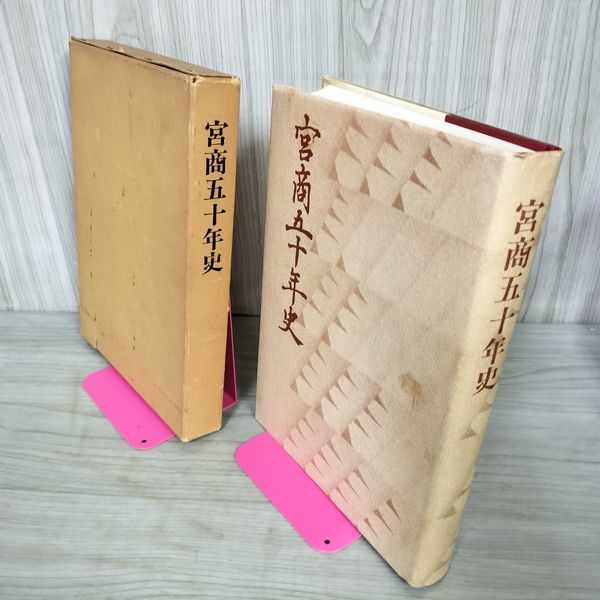 宮商五十年史
宮商五十年史
宮商五十年史